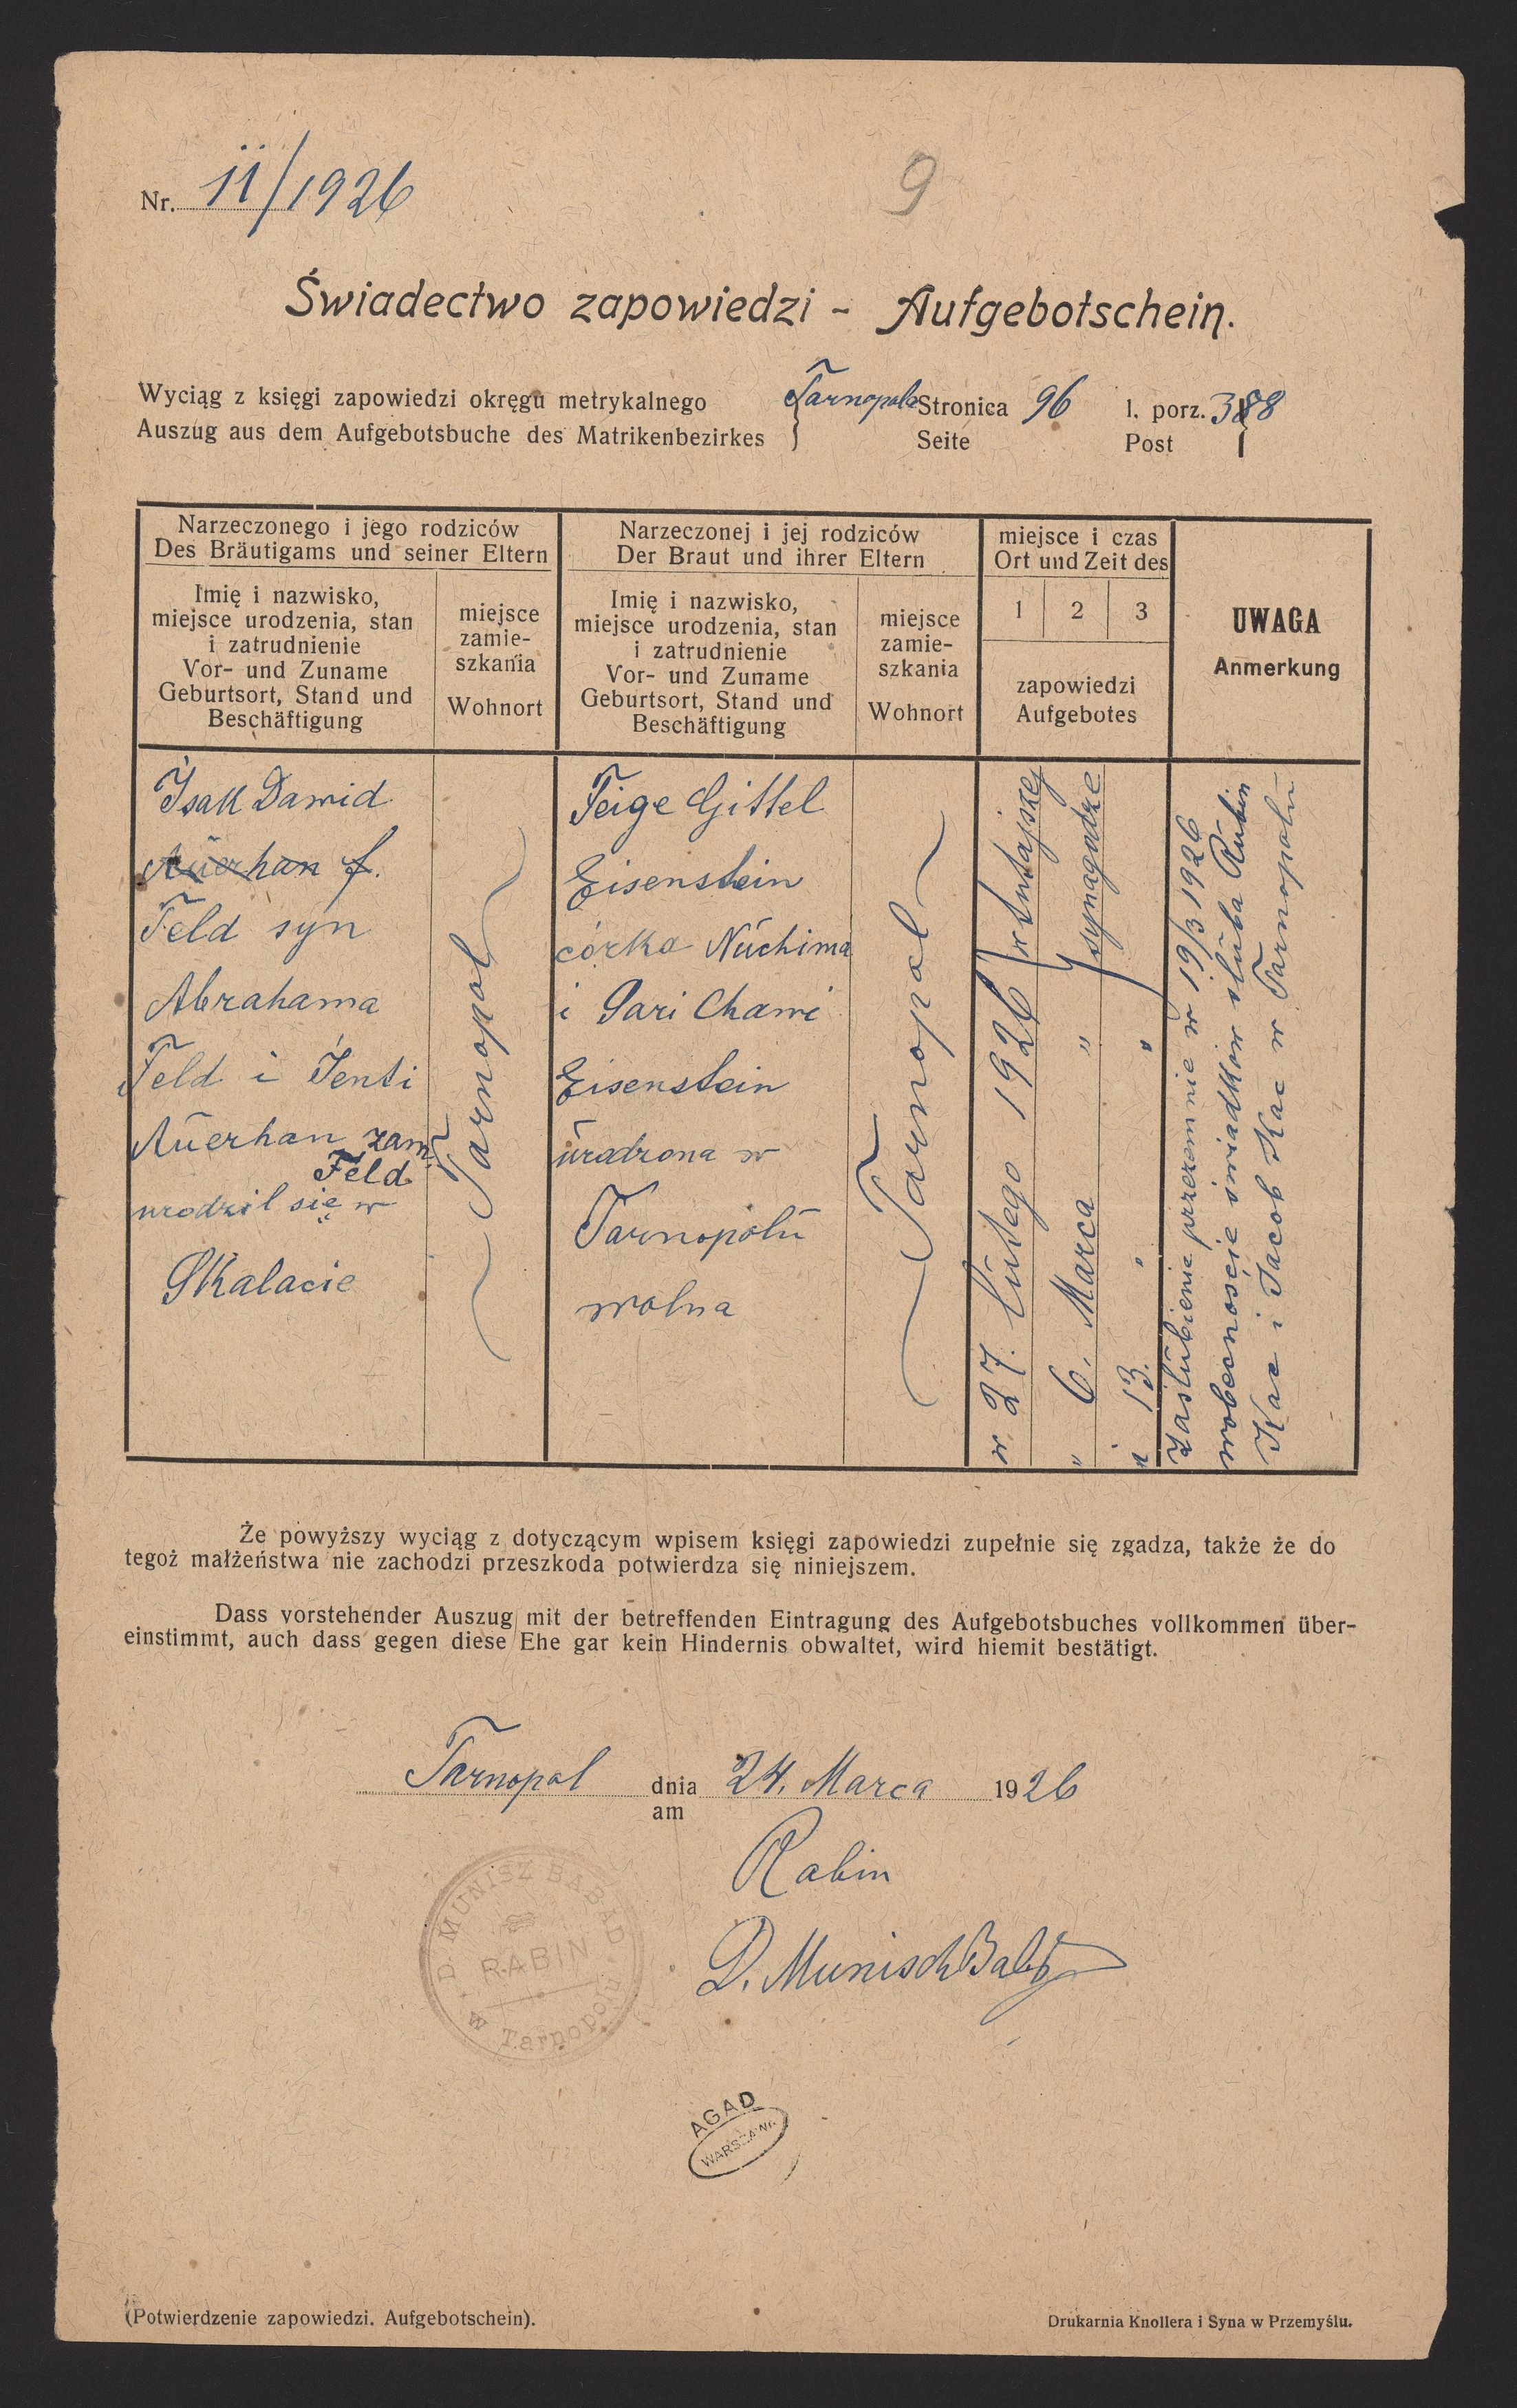 Nr. 11/1926
9
Świadectwo zapowiedzi - Aufgebotschein.
Wyciąg z księgi zapowiedzi okręgu metrykalnego Tarnopola Stronica 96 l. porz. 388
Auszug aus dem Aufgebotsbuche des Matrikenbezirkes Seite Post
Narzeczonego i jego rodziców
Des Bräutigams und seiner Eltern
Imię i nazwisko,
miejsce urodzenia, stan
i zatrudnienie
Vor- und Zuname
Geburtsort, Stand und
Beschäftigung
miejsce
zamie-
szkania
Wohnort
Narzeczonej i jej rodziców
Der Braut und ihrer Eltern
Imię i nazwisko,
miejsce urodzenia, stan
i zatrudnienie
Vor- und Zuname
Geburtsort, Stand und
Beschäftigung
miejsce
zamie-
szkania
Wohnort
miejsce i czas
Ort und Zeit des
1 2 3
zapowiedzi
Aufgebotes
UWAGA
Anmerkung
Isak Dawid
Auerhan f.
Feld syn
Abrahama
Feld i Jenti
Auerhan zam.
Feld
urodził się w
Skalacie
Tarnopol
Feige Gittel
Eisenstein
córka Nuchima
i Sari Chawi
Eisenstein
urodzona w
Tarnopolu
wolna
Tarnopol
w 27. lutego 1926 w tutajszej
" 6. Marca " synagodze
" 13. " "
Zaślubienie przezemnie w 19/3 1926
wobecnoście świadków śluba Rubin
Kac i Jacob Kac w Tarnopolu
Że powyższy wyciąg z dotyczącym wpisem księgi zapowiedzi zupełnie się zgadza, także że do
tegoż małżeństwa nie zachodzi przeszkoda potwierdza się niniejszem.
Dass vorstehender Auszug mit der betreffenden Eintragung des Aufgebotsbuches vollkommen über-
einstimmt, auch dass gegen diese Ehe gar kein Hindernis obwaltet, wird hiemit bestätigt.
Tarnopol dnia 24. Marca 1926
am
Rabin
D. Munisch Babad
D. MUNISZ BABAD
RABIN
w Tarnopolu
AGAD
WARSZAWA
(Potwierdzenie zapowiedzi. Aufgebotschein).
Drukarnia Knollera i Syna w Przemyślu.